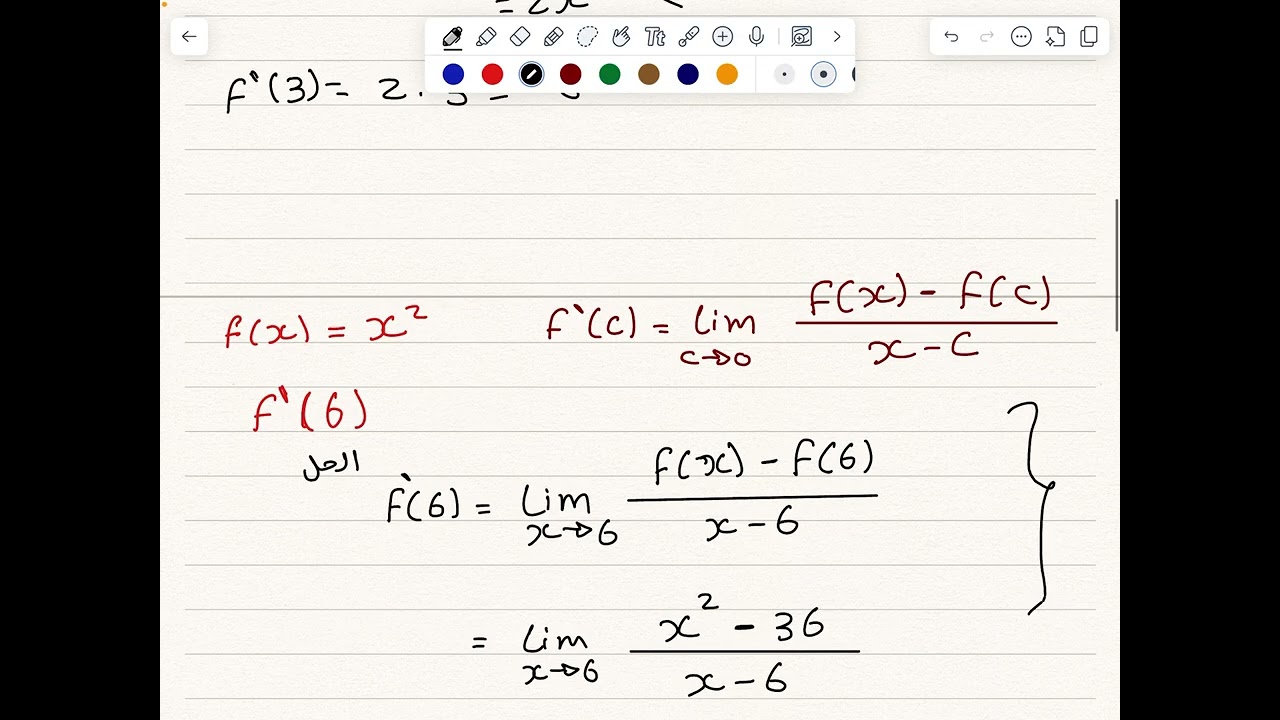 = 2x
Tt
f`(3) = 2 .
f(x) = x² f`(c) = lim c→0 f(x) - f(c) / x - c
f`(6)
الحل
f`(6) = lim x→6 f(x) - f(6) / x - 6
= lim x→6 x² - 36 / x - 6